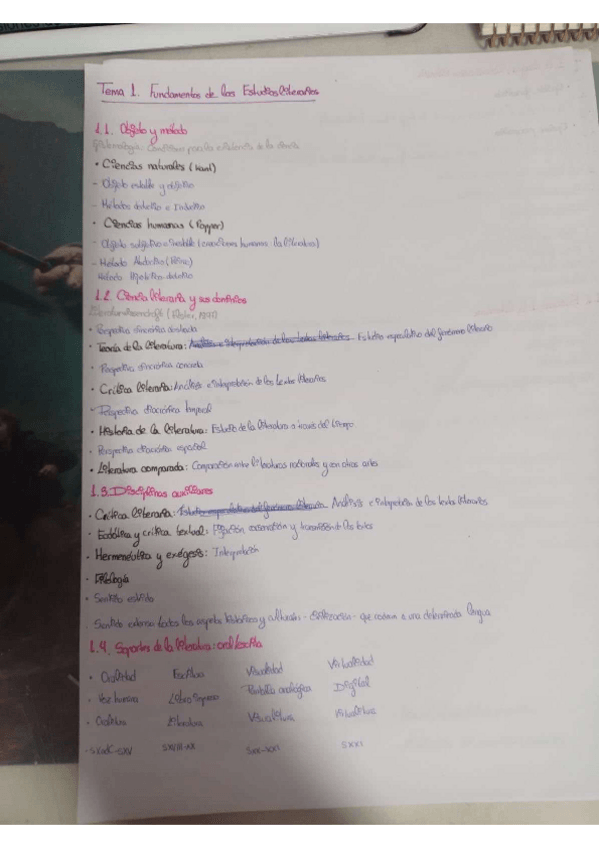 Tema 1. Fundamentos de los Estudios literarios
1.1. Objeto y método
Epistemología: Condiciones para la existencia de la ciencia
• Ciencias naturales (Kant)
- Objeto estable y objetivo
- Métodos deductivo e Inductivo
• Ciencias humanas (Popper)
- Objeto subjetivo e inestable (creaciones humanas: la literatura)
- Método Abductivo (Peirce)
Método Hipotético-deductivo
1.2. Ciencia literaria y sus dominios
Literaturwissenschaft
• Perspectiva diacrónica
• Teoría de la literatura: Análisis e interpretación de los textos literarios. Estudio especulativo del fenómeno literario
- Perspectiva diacrónica
• Crítica literaria: Análisis e interpretación de los textos literarios
- Perspectiva diacrónica temporal
• Historia de la literatura: Estudio de la literatura a través del tiempo
- Perspectiva diacrónica espacial
• Literatura comparada: Comparación entre literaturas nacionales y con otras artes
1.3. Disciplinas auxiliares
• Crítica literaria: Estudio especulativo del fenómeno literario. Análisis e interpretación de los textos literarios
• Ecdótica y crítica textual: Fijación, conservación y transmisión de los textos
• Hermenéutica y exégesis: Interpretación
• Filología
• Sentido estricto
. Sentido extenso: todos los aspectos históricos y culturales - civilización - que rodean a una determinada lengua
1.4. Soportes de la literatura: oral/escrita
• Oralidad Escritura Visualidad Virtualidad
• Voz humana Libro Impreso Pantalla analógica Digital
• Oratura Literatura Visualitura Virtualitura
SXVIII-XX SXX-XXI SXXI